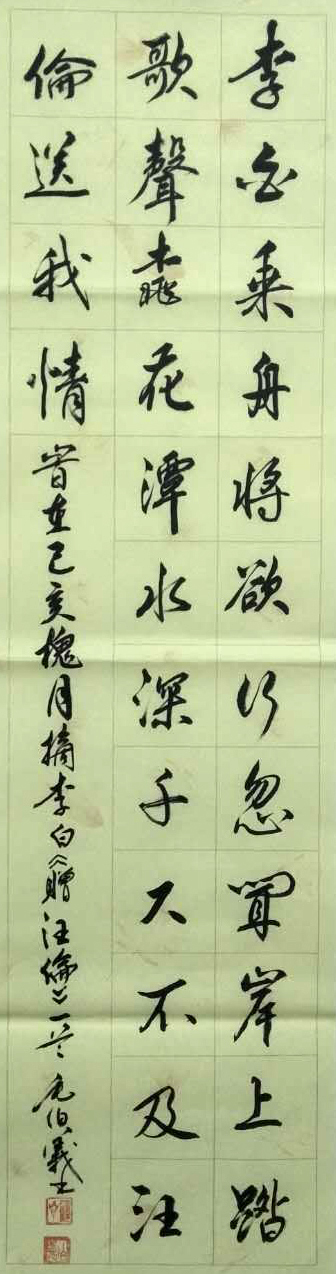 李白乘舟将欲行忽闻岸上踏
歌聲桃花潭水深千尺不及汪
倫送我情
岁在己亥槐月摘李白《贈汪倫》